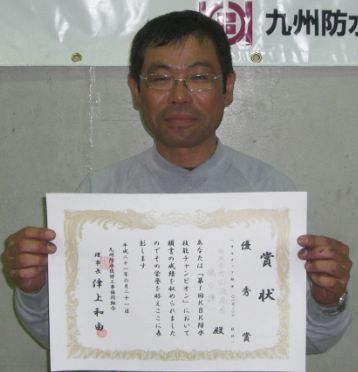 九州防水
賞状
優秀賞
殿
あなたは「第1回KBK防水
技能チャンピオン」において
頭書の成績を収められました
のでその栄誉を称えここに表
彰します
平成二十一年八月二十一日
九州防水技能士事業協同組合
理事長 津上和由